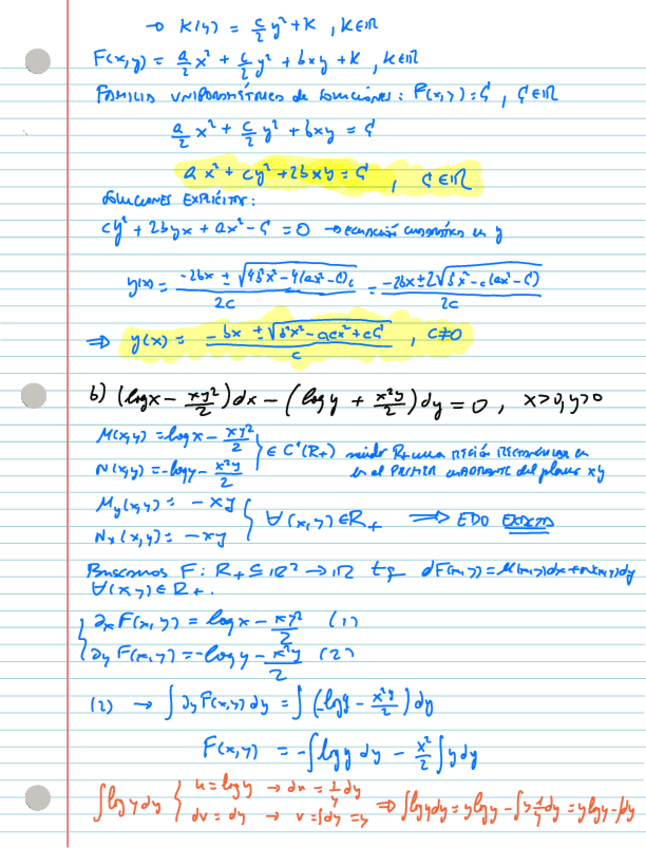 → K(y) = c/2 y² + K , K∈ℝ
F(x,y) = a/2 x² + c/2 y² + bxy + K , K∈ℝ
FAMILIA UNIPARAMÉTRICA de soluciones: F(x,y) = C , C∈ℝ
a/2 x² + c/2 y² + bxy = C
ax² + cy² + 2bxy = C , C∈ℝ
SOLUCIONES EXPLÍCITAS:
cy² + 2byx + ax² - C = 0 → ecuación cuadrática en y
y(x) = (-2bx ± √(4b²x² - 4(ax² - C)c))/2c = (-2bx ± 2√(b²x² - c(ax² - C)))/2c
⇒ y(x) = (-bx ± √(b²x² - acx² + cC))/c , c≠0
b) (log x - xy²/2)dx - (log y + x²y/2)dy = 0 , x>0, y>0
M(x,y) = log x - xy²/2
N(x,y) = -log y - x²y/2 } ∈ C¹(R₊) siendo R₊ una región rectangular en
en el PRIMER cuadrante del plano xy
M_y(x,y) = -xy
N_x(x,y) = -xy } ∀(x,y)∈R₊ ⇒ EDO EXACTA
Buscamos F: R₊ ⊆ ℝ² → ℝ tq dF(x,y) = M(x,y)dx + N(x,y)dy
∀(x,y) ∈ R₊.
{ ∂ₓF(x,y) = log x - xy²/2 (1)
∂yF(x,y) = -log y - x²y/2 (2)
(2) → ∫∂yF(x,y)dy = ∫(-log y - x²y/2)dy
F(x,y) = -∫log y dy - x²/2 ∫y dy
∫log y dy { u = log y → du = 1/y dy
dv = dy → v = ∫dy = y ⇒ ∫log y dy = y log y - ∫y 1/y dy = y log y - ∫dy